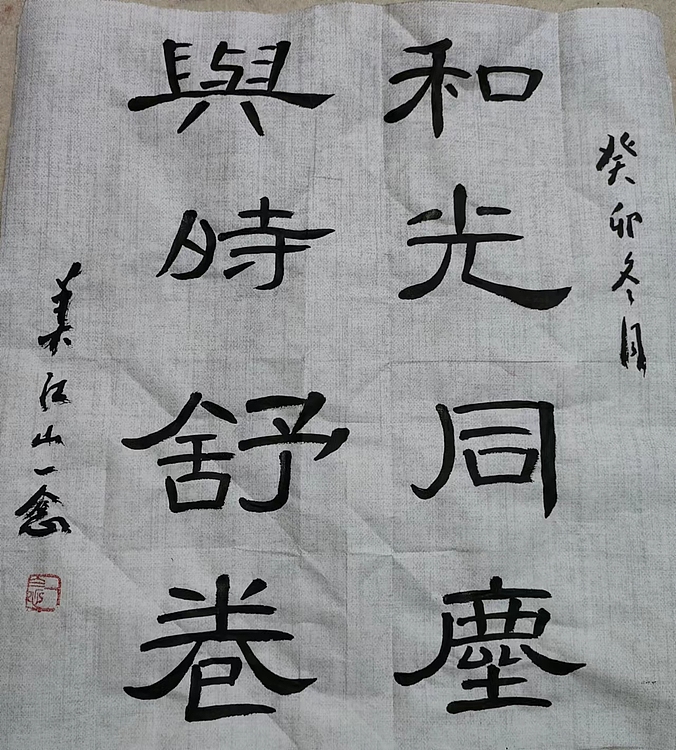 癸卯冬月
和光同塵
與時舒卷
美江山一念